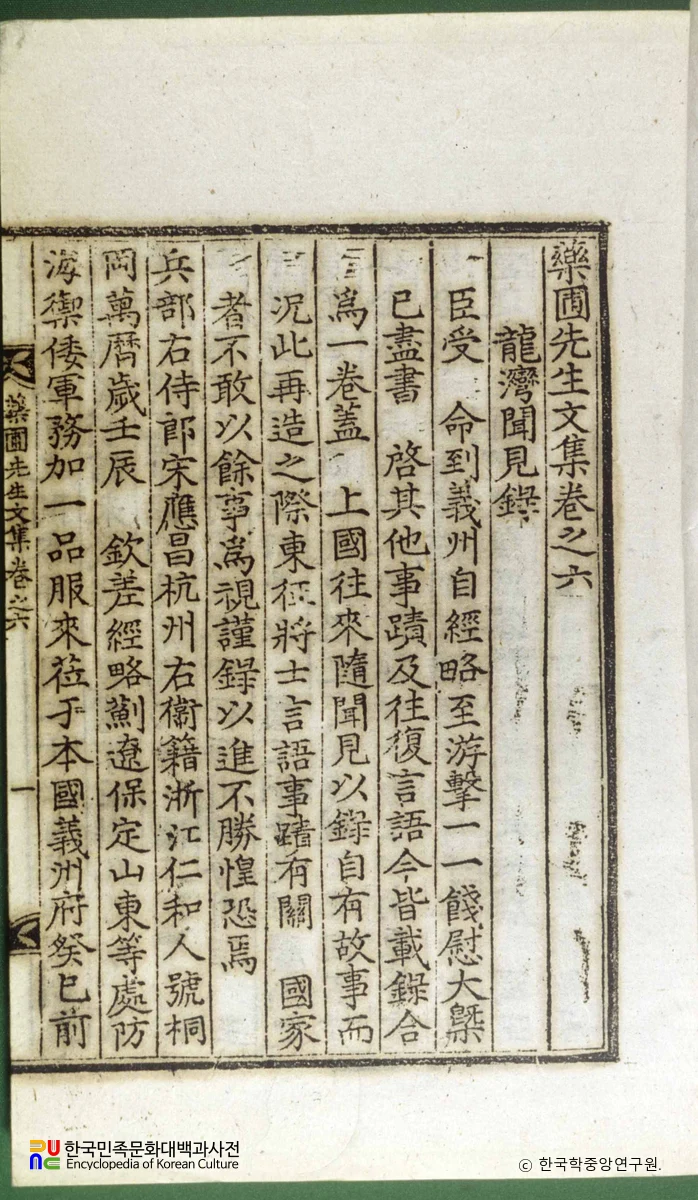 藥圃先生文集卷之六
龍灣聞見錄
臣受 命到義州自經略至游擊一一餞慰大槩
已盡書 啓其他事蹟及往復言語今皆載錄合
爲一卷蓋 上國往來隨聞見以錄自有故事而
況此再造之際東征將士言語事蹟有關 國家
者不敢以餘事爲視謹錄以進不勝惶恐焉
兵部右侍郎宋應昌杭州右衛籍浙江仁和人號桐
岡萬曆歲壬辰 欽差經略薊遼保定山東等處防
海禦倭軍務加一品服來莅于本國義州府癸巳前
藥圃先生文集卷之六
一
한국민족문화대백과사전
Encyclopedia of Korean Culture
ⓒ 한국학중앙연구원.